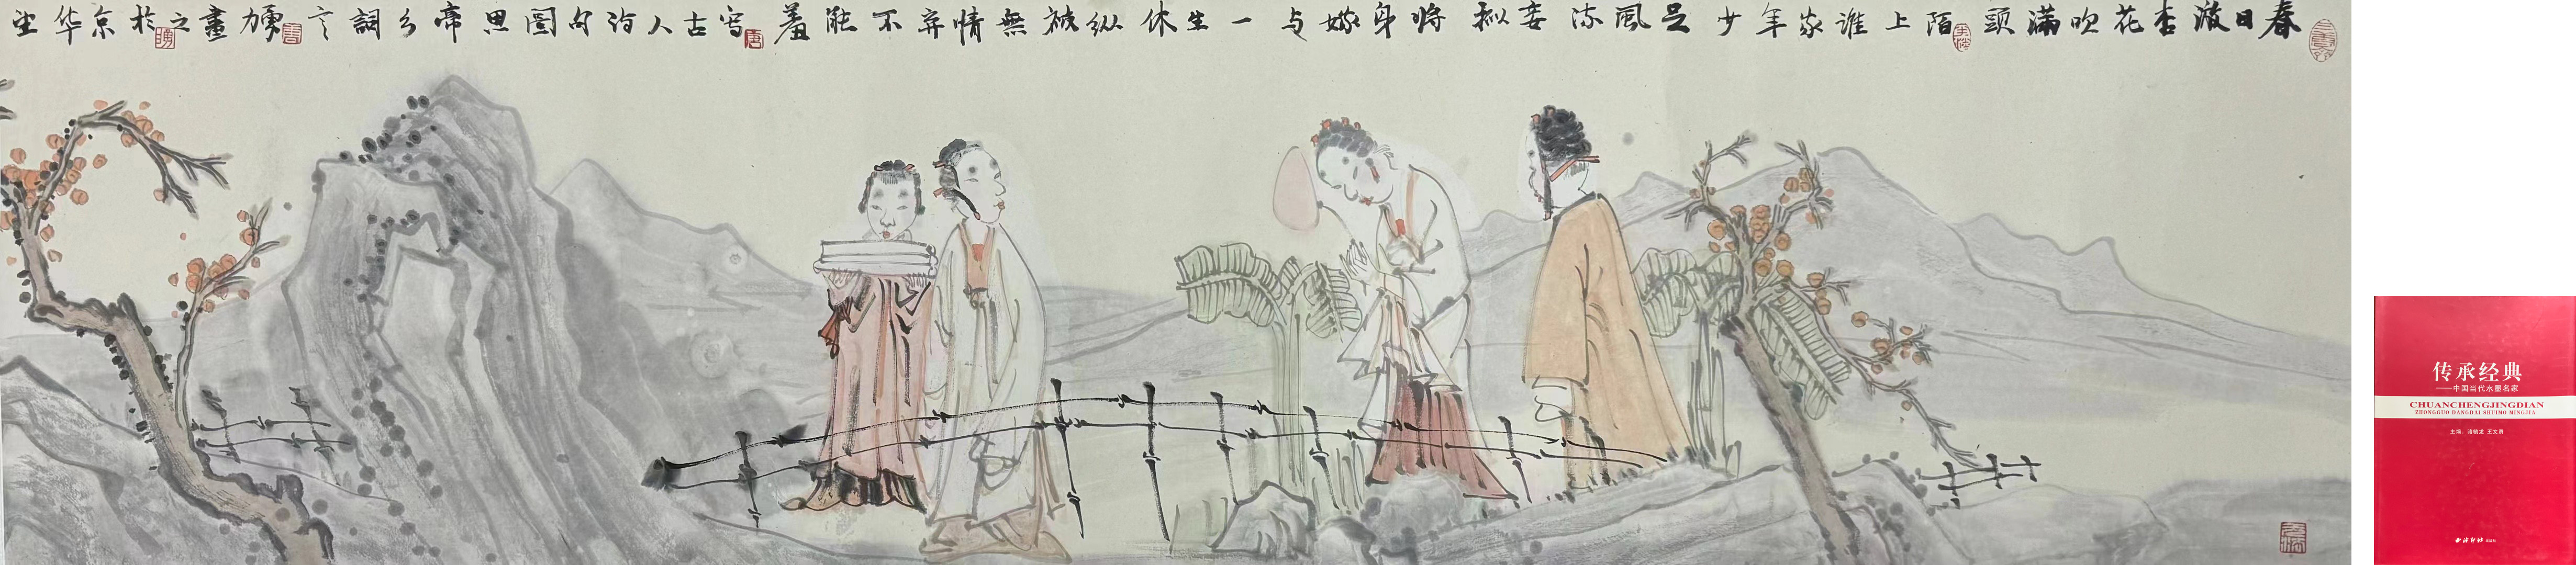 春日游杏花吹滿頭陌上谁家年少足風流妾拟将身嫁与一生休纵被無情弃不能羞写古人詩句圖思帝乡詞勇畫之於京华
传承经典
——中国当代水墨名家
CHUANCHENGJINGDIAN
ZHONGGUO DANGDAI SHUIMO MINGJIA
主编：
西泠印社出版社